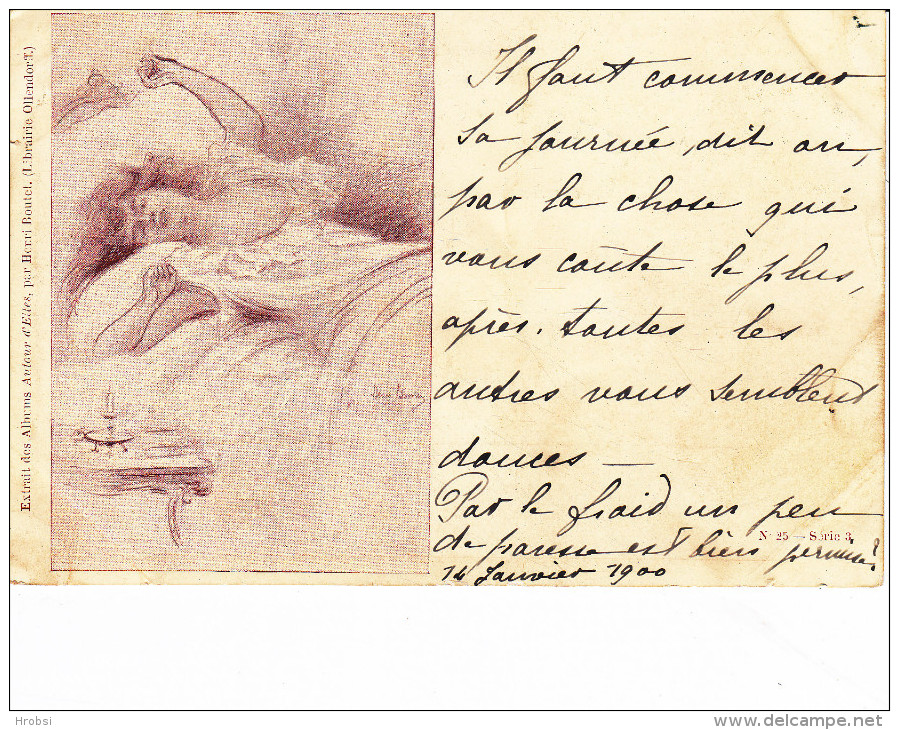 Extrait des Albums Autour d'Elles, par Henri Boutet. (Librairie Ollendorff.)
Il faut commencer
sa journée, dit on,
par la chose qui
vous coûte le plus,
après. toutes les
autres vous semblent
douces —
Par le froid un peu
de paresse est bien permise?
14 Janvier 1900
N° 25 — Série 3
Hrobsi
delcampe.net